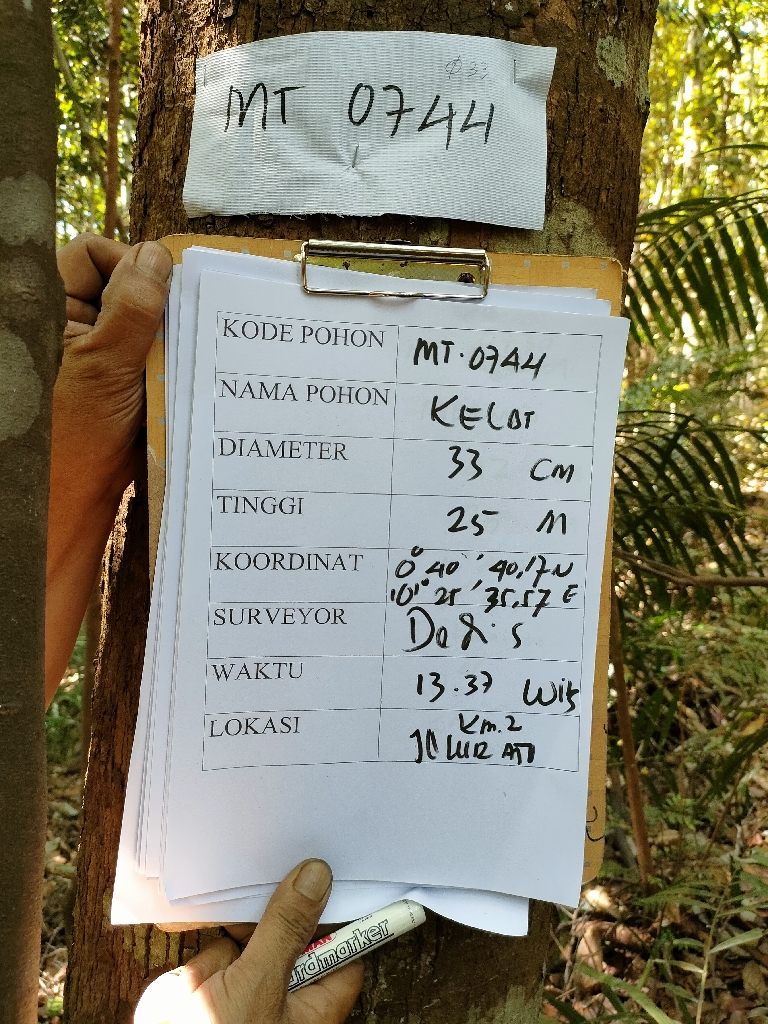 Φ 33
MT 0744
KODE POHON MT.0744
NAMA POHON KELAT
DIAMETER 33 CM
TINGGI 25 M
KOORDINAT 0° 40' 40,17 N
101° 25' 35,57 E
SURVEYOR
WAKTU 13.37 Wib
LOKASI Km.2
ardmarker